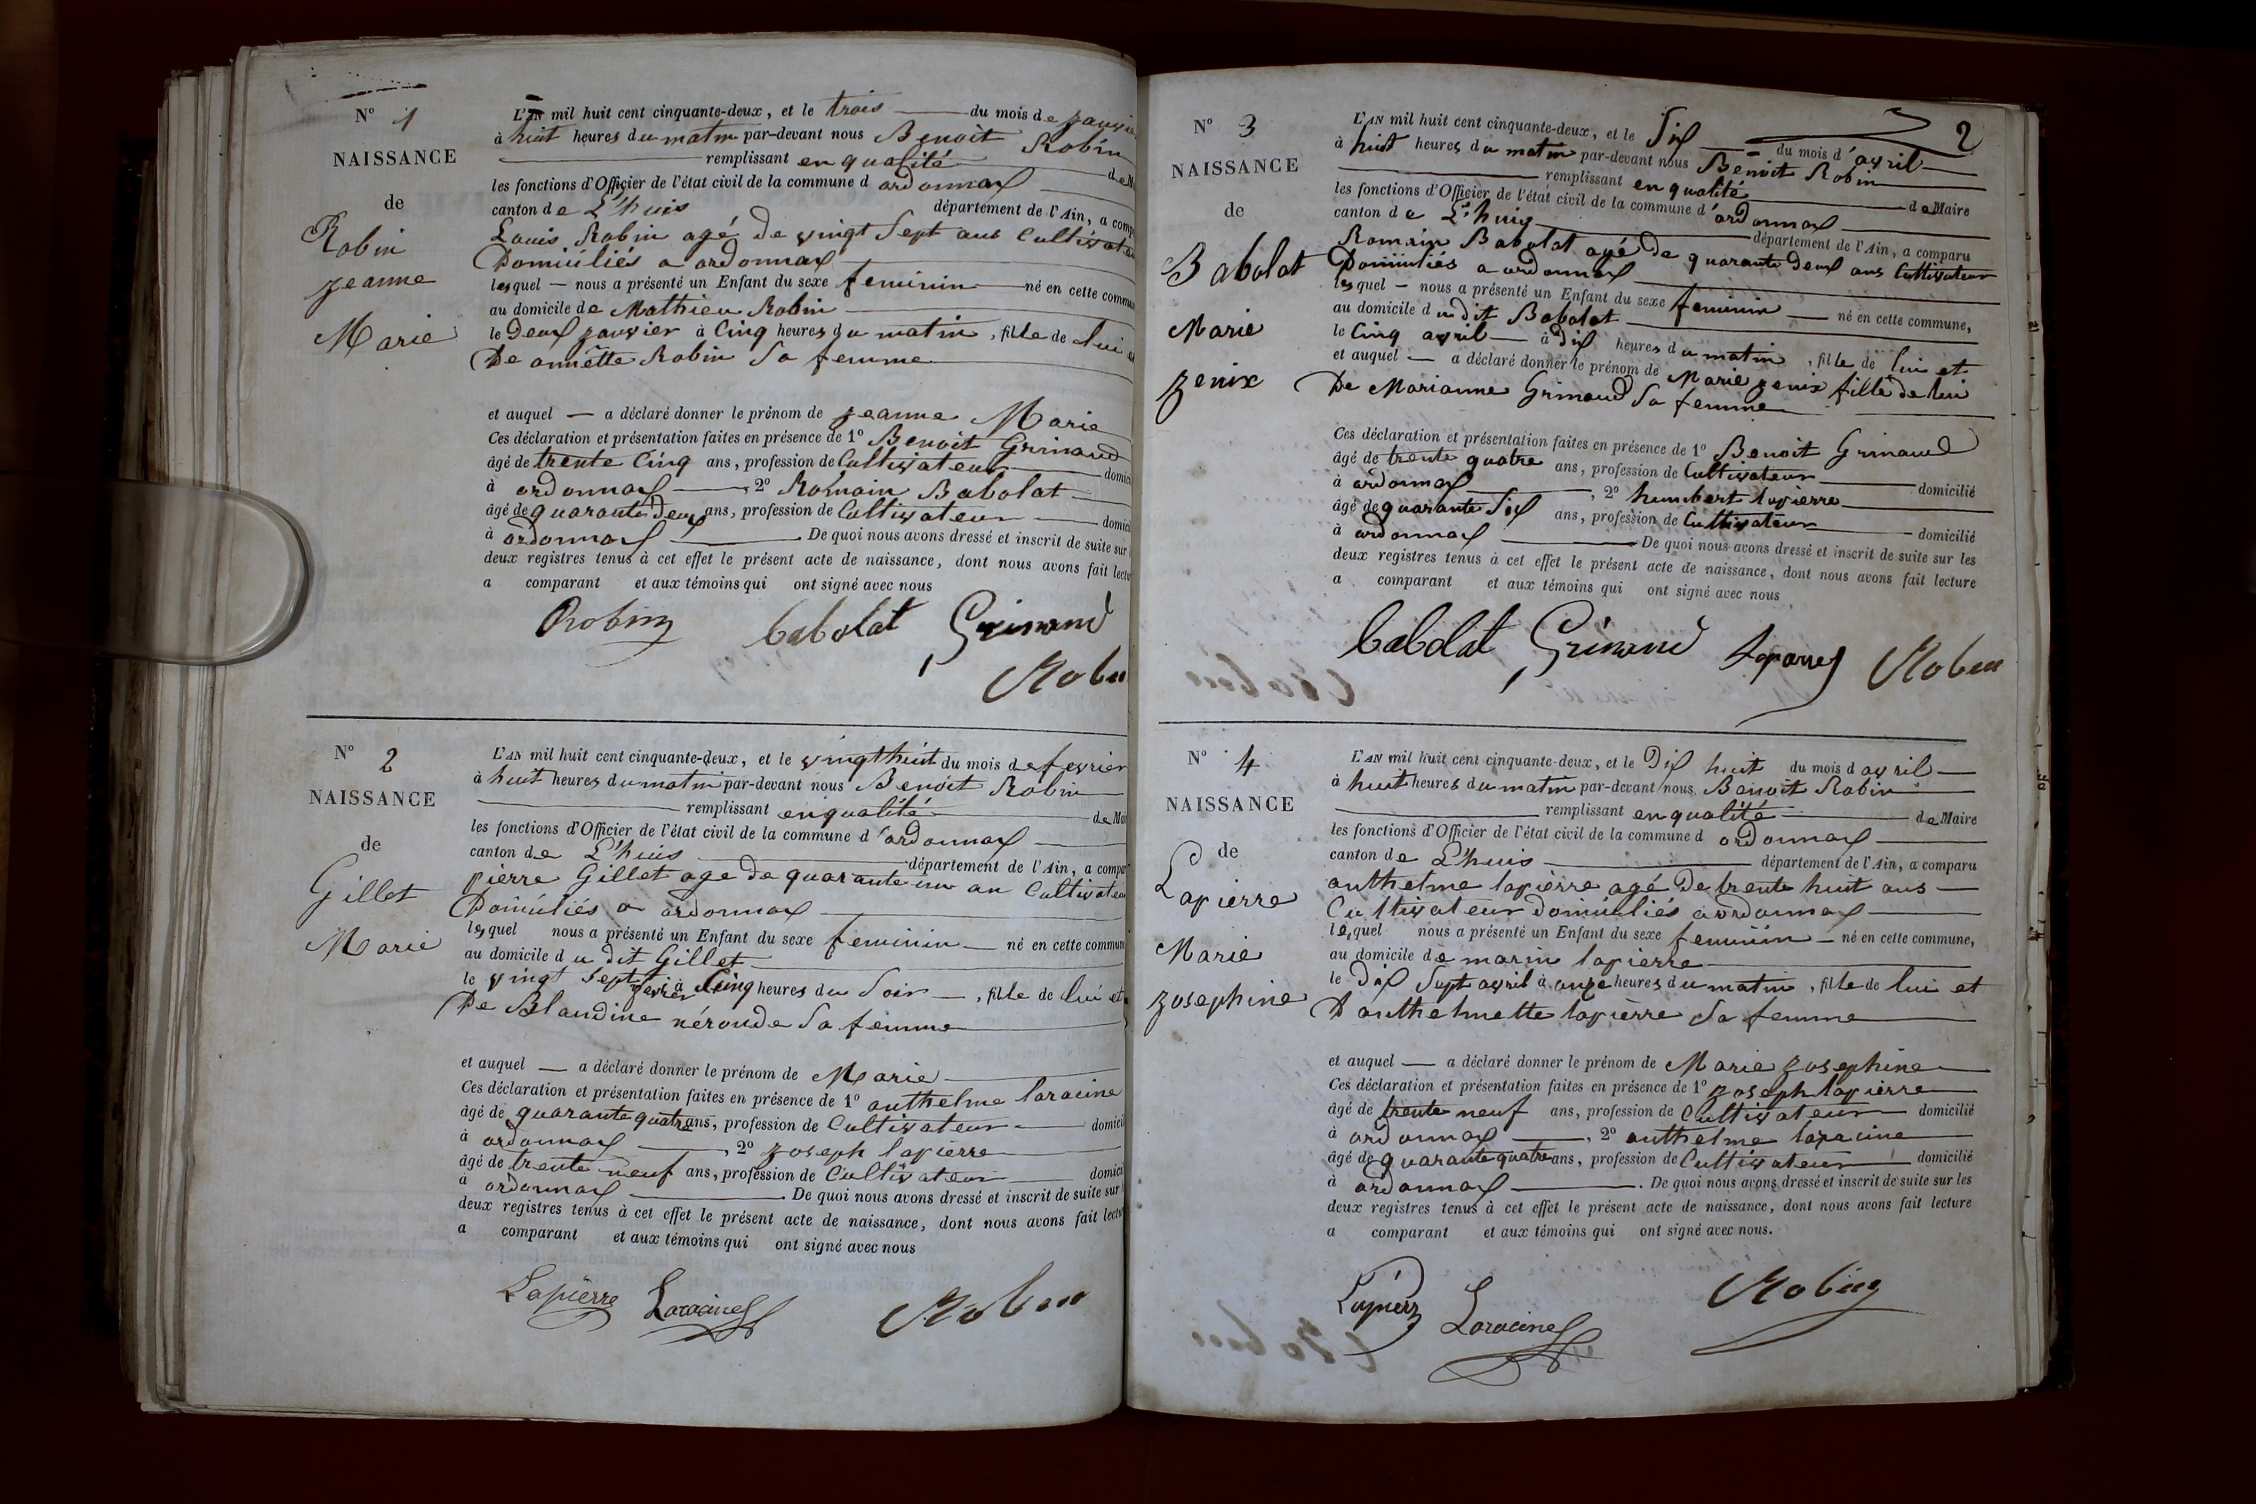 N° 1
NAISSANCE
de
Robin
jeanne
Marie
L'AN mil huit cent cinquante-deux, et le trois du mois de janvie
à huit heures du matin par-devant nous Benoit Robin
remplissant en qualité de M
les fonctions d'Officier de l'état civil de la commune d ordonnax
canton de L'huis département de l'Ain, a comp
Louis Robin agé de vingt Sept ans Cultivate
Domiciliés a ordonnax
lesquel nous a présenté un Enfant du sexe feminin né en cette commun
au domicile de Mathieu Robin
le Deux janvier à Cinq heures du matin, fille de lui
De annette Robin Sa femme
et auquel a déclaré donner le prénom de jeanne Marie
Ces déclaration et présentation faites en présence de 1° Benoit Grinand
âgé de trente Cinq ans, profession de Cultivateur domici
à ordonnax, 2° Romain Babolat
âgé de quarante Deux ans, profession de Cultivateur domici
à ordonnax. De quoi nous avons dressé et inscrit de suite sur
deux registres tenus à cet effet le présent acte de naissance, dont nous avons fait lectu
a comparant et aux témoins qui ont signé avec nous
Robin babolat Grinand
Robin
N° 2
NAISSANCE
de
Gillet
Marie
L'AN mil huit cent cinquante-deux, et le vingt huit du mois de fevrier
à huit heures du matin par-devant nous Benoit Robin
remplissant en qualité de Mai
les fonctions d'Officier de l'état civil de la commune d'ordonnax
canton de L'huis département de l'Ain, a compa
pierre Gillet age de quarante un an Cultivateu
Domiciliés a ordonnax
lesquel nous a présenté un Enfant du sexe feminin né en cette commun
au domicile du dit Gillet
le vingt Sept fevrier à Cinq heures du Soir, fille de lui et
De Blandine néronde Sa femme
et auquel a déclaré donner le prénom de Marie
Ces déclaration et présentation faites en présence de 1° anthelme laracine
âgé de quarante quatre ans, profession de Cultivateur domicil
à ordonnax, 2° joseph lapierre
âgé de trente neuf ans, profession de Cultivateur domici
à ordonnax. De quoi nous avons dressé et inscrit de suite sur
deux registres tenus à cet effet le présent acte de naissance, dont nous avons fait lectu
a comparant et aux témoins qui ont signé avec nous
Lapierre Laracine Robin
2
N° 3
NAISSANCE
de
Babolat
Marie
jenix
L'AN mil huit cent cinquante-deux, et le Six du mois d'avril
à huit heures du matin par-devant nous Benoit Robin
remplissant en qualité de Maire
les fonctions d'Officier de l'état civil de la commune d'ordonnax
canton de L'huis département de l'Ain, a comparu
Romain Babolat agé de quarante deux ans Cultivateur
Domiciliés a ordonnax
lesquel nous a présenté un Enfant du sexe feminin né en cette commune,
au domicile du dit Babolat
le Cinq avril à dix heures du matin, fille de lui et
et auquel a déclaré donner le prénom de Marie jenix fille de lui
De Marianne Grinand Sa femme
Ces déclaration et présentation faites en présence de 1° Benoit Grinand
âgé de trente quatre ans, profession de Cultivateur domicilié
à ordonnax, 2° humbert lapierre
âgé de quarante Six ans, profession de Cultivateur domicilié
à ordonnax De quoi nous avons dressé et inscrit de suite sur les
deux registres tenus à cet effet le présent acte de naissance, dont nous avons fait lecture
a comparant et aux témoins qui ont signé avec nous
babolat Grinand Robin
N° 4
NAISSANCE
de
Lapierre
Marie
josephine
L'AN mil huit cent cinquante-deux, et le Dix huit du mois d avril
à huit heures du matin par-devant nous Benoit Robin
remplissant en qualité de Maire
les fonctions d'Officier de l'état civil de la commune d ordonnax
canton de L'huis département de l'Ain, a comparu
anthelme lapierre agé De trente huit ans
Cultivateur domiciliés a ordonnax
lesquel nous a présenté un Enfant du sexe feminin né en cette commune,
au domicile de marin lapierre
le Dix Sept avril à onze heures du matin, fille de lui et
D anthelmette lapierre Sa femme
et auquel a déclaré donner le prénom de Marie josephine
Ces déclaration et présentation faites en présence de 1° joseph lapierre
âgé de trente neuf ans, profession de Cultivateur domicilié
à ordonnax, 2° anthelme laracine
âgé de quarante quatre ans, profession de Cultivateur domicilié
à ordonnax. De quoi nous avons dressé et inscrit de suite sur les
deux registres tenus à cet effet le présent acte de naissance, dont nous avons fait lecture
a comparant et aux témoins qui ont signé avec nous.
Lapierre Laracine Robin